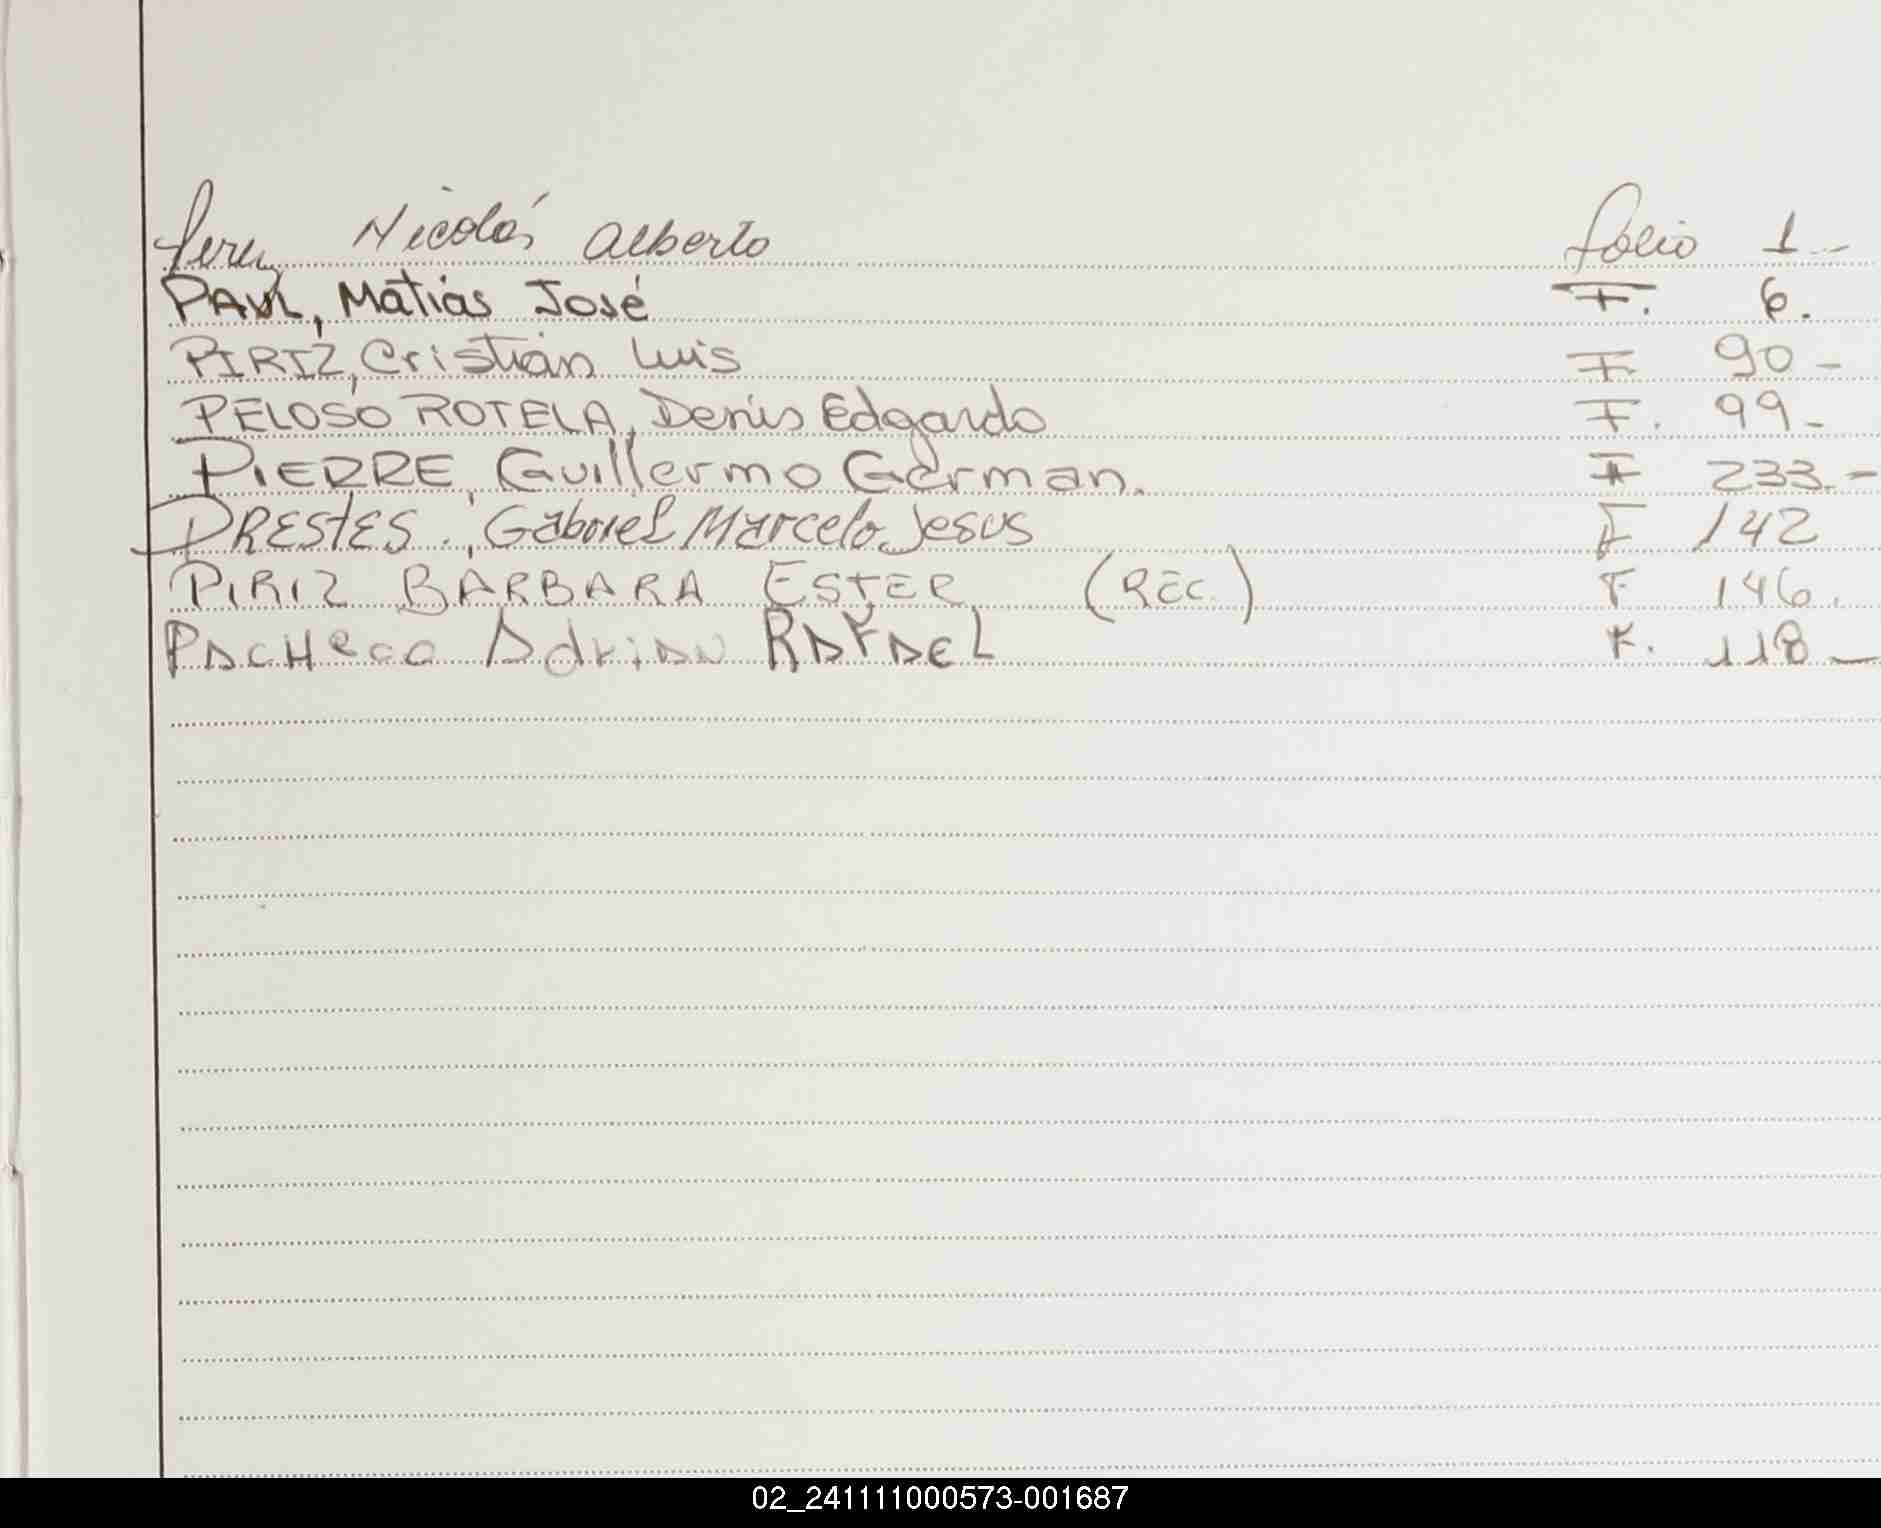 Perez Nicolás Alberto folio 1 -
PAUL, Matias José F. 6.
PIRIZ, Cristian Luis F. 90 -
PELOSO ROTELA, Denis Edgardo F. 99 -
PIERRE, Guillermo German. F 233 -
PRESTES, Gabriel Marcelo Jesus F 142
PIRIZ BARBARA ESTER (REC.) F 146.
PACHECO Adrian RAFAEL F. 118 -
02_241111000573-001687